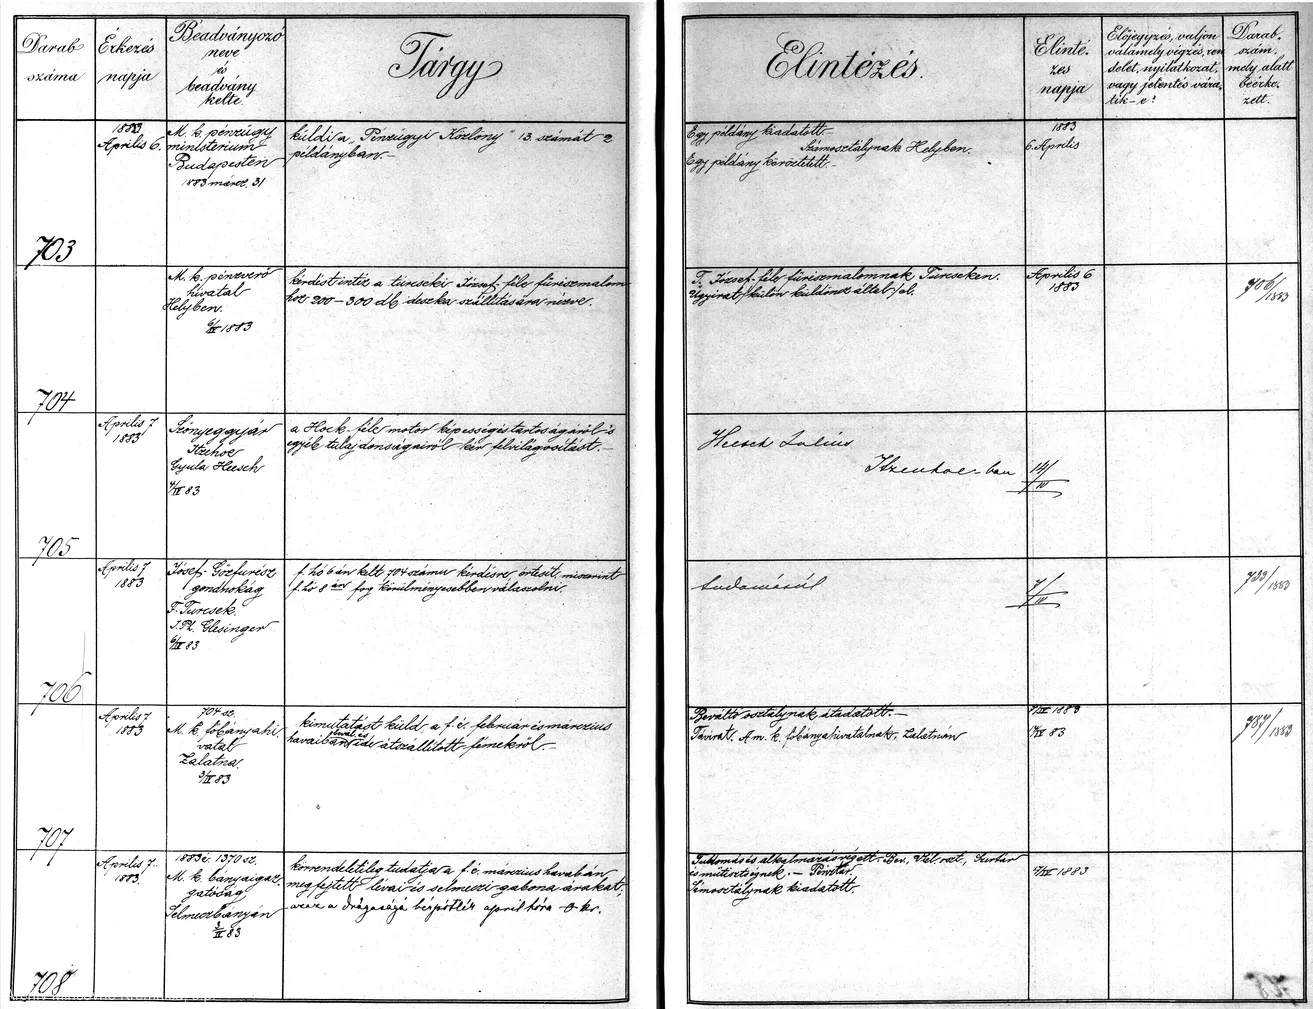 Darab száma
Érkezés napja
Beadványozó neve és beadvány kelte.
Tárgy
Elintézés.
Elintézés napja
Előjegyzés, valjon valamely végzés, rendelet, nyilatkozat, vagy jelentés váratik-e?
Darabszám, mely alatt beérkezett.
703
1883
Április 6.
M. k. pénzügy
ministerium
Budapesten
1883 márcz. 31
küldi a "Pénzügyi Közlöny" 13. számát 2
példányban.—
Egy példány kiadatott.—
Számosztálynak Helyben.
Egy példány köröztetett.—
1883
6. Április
704
M. k. pénzverő
hivatal
Helyben.
6/IV 1883
kérdést intéz a turcseki József-féle fürészmalom-
hoz 200-300 db deszka szállítására nézve.
T. József-féle fürészmalomnak Turcseken.
Ugyirat külön küldöncz által
Április 6
1883
706/1883
705
Április 7
1883
Szőnyeggyár
Itzehoe
Gyula Heesch
4/IV 83
a Hock féle motor képesség és tartosságáról s
egyéb tulajdonságairól kér felvilágosítást.—
Heesch Julius
Itzenhoe-ban
14/IV
706
Április 7
1883
József-Gőzfürész
gondnokág
F. Turcsek.
Glesinger
6/IV 83
f. hó 6 án kelt 704 számu kérdésre, értesít, miszerint
f. hó 8 án fog körülményesebben válaszolni.
tudomásúl
7/IV
733/1883
707
Április 7
1883
704 sz.
M. k. főbányahi
vatal
Zalatna.
3/IV 83
kimutatást küld, a f. é. február és márczius
havaiban ide átszállított fémekről.—
Beváltó osztálynak átadatott.—
Távirat. A m. k. főbányahivatalnak, Zalatnán
7/IV 1883
IV 83
787/1883
708
Április 7.
1883.
1883 é. 1370 sz.
M. k. bányaigaz-
gatóság
Selmeczbányán
3/IV 83
körrendeletileg tudatja a f. é. márczius havabán
megfejtett lévai és selmeczi gabona árakat,
azaz a drágasági bérpótlék april hóra
Tudomás és alkalmazás végett. Bev,
és műtisztségnek.— Pénztár.
Számosztálynak kiadatott.
7/IV 1883